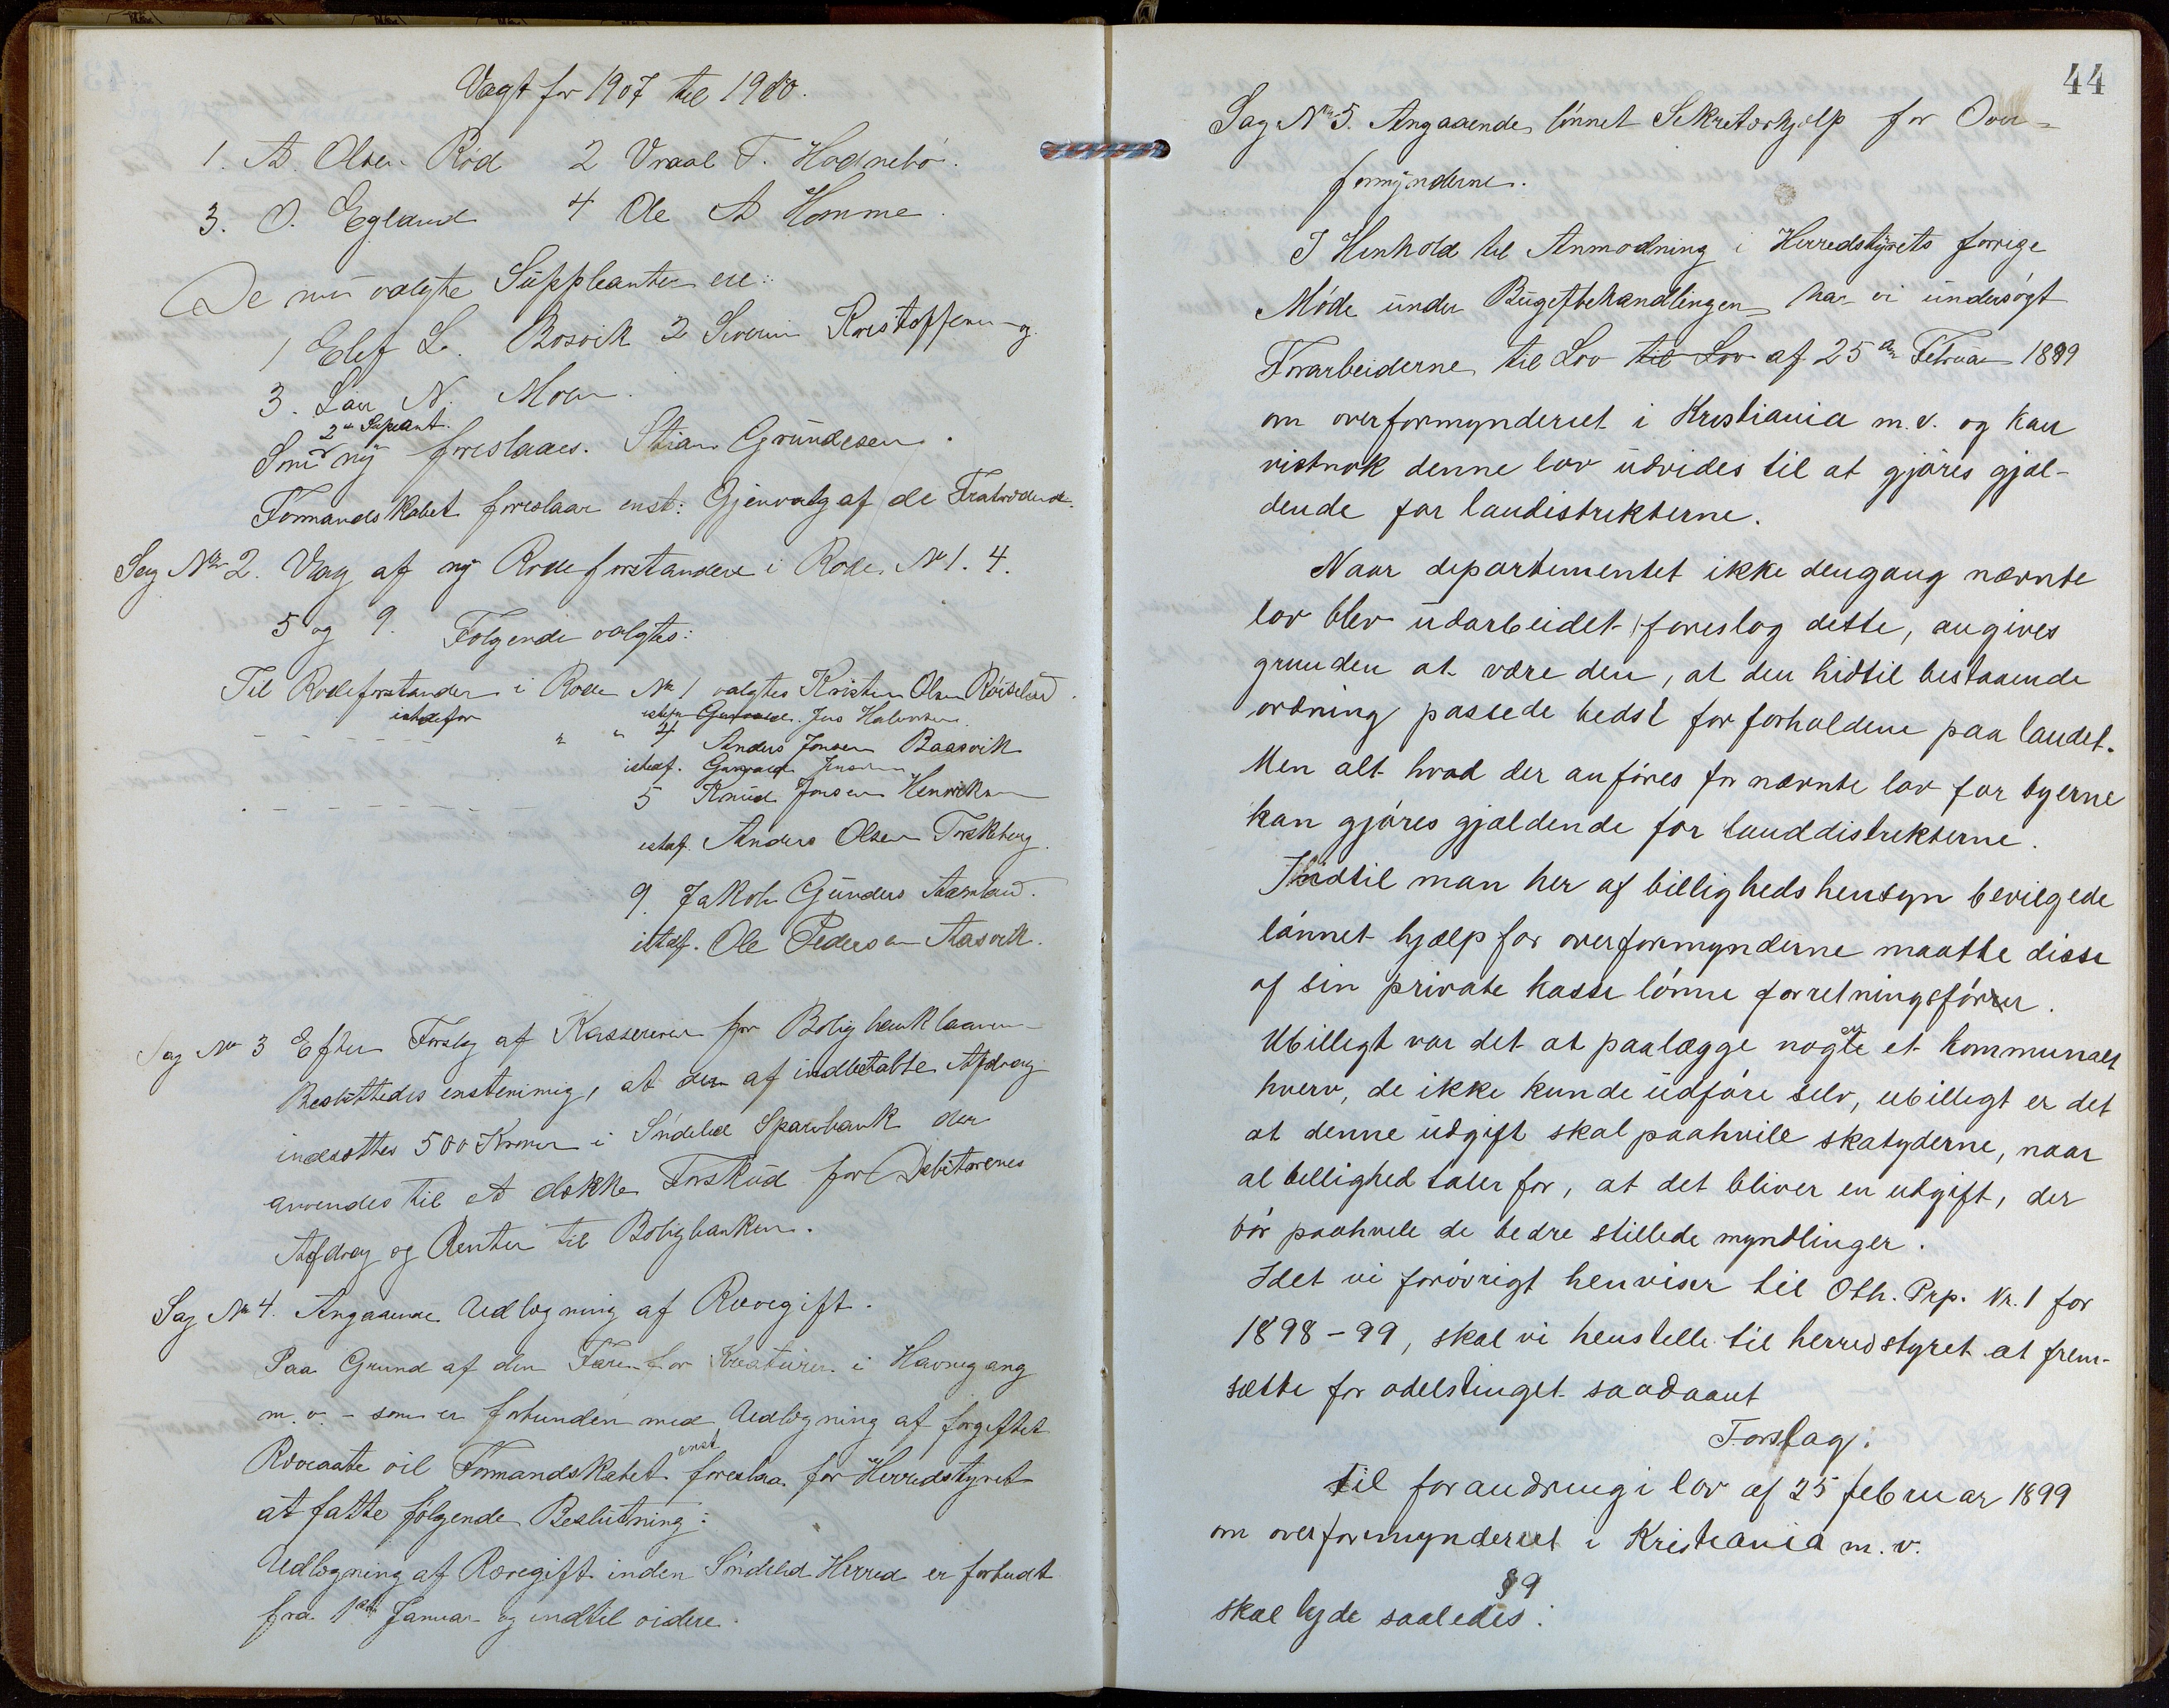 Valgt for 1907 til 1910.
1. A. Olsen Röd 2 Vraal T. Hödnebö.
3. O. Egland 4 Ole A Homme.
De nu valgte Suppleanter ere:
1 Elef L. Bosvik 2 Severin Kristoffersen og
3. Lau N. Moen.
2den Supeant.
Som ny foreslaaes. Stian Grundesen.
Formandskabet foreslaar enst: Gjenvalg af de Fratrædende.
Sag No 2. Valg af ny Rodeforstandere i Rode No 1. 4.
5 og 9. Følgende valgtes:
Til Rodeforstander i Rode No 1 valgtes Kristen Olsen Röiseland.
istedefor istedf. Jens Halvorsen
" " 4 Anders Jonsen Baasvik
istedf. Gunvald Jensen
5 Knud Jonsen Henriksen
istedf. Anders Olsen Torskberg.
9. Jakob Gunders Aarland.
istedf. Ole Pedersen Aasvik.
Sag No 3 Efter Forslag af Kassereren for Boligbanklaanene
Besluttedes enstemmig, at der af indbetalte Afdrag
indsættes 500 Kroner i Söndeled Sparebank der
anvendes til at dække Forskud for Debitorenes
Afdrag og Renter til Boligbanken.
Sag No 4. Angaaende Udlægning af Rævegift.
Paa Grund af den Fare for Kreaturer i Havnegang
m. v. - som er forbunden med Udlægning af forgiftet
enst
Ræveaate vil Formandskabet foreslaa for Herredstyret
at fatte følgende Beslutning:
Udlægning af Rævegift inden Söndeled Herred er forbudt
fra 1ste Januar og indtil videre.
44
Sag No 5. Angaaende lönnet Sekretærhjælp for Over=
formynderne.
I Henhold til Anmodning i Herredstyrets forrige
Möde under Bugetbehandlingen har vi undersögt
Forarbeiderne til Lov til Lov af 25de Februar 1899
om overformynderiet i Kristiania m. v. og kan
vistnok denne lov udvides til at gjöres gjæl-
dende for landistrikterne.
Naar departementet ikke dengang nævnte
lov blev udarbeidet foreslog dette, angives
grunden at være den, at den hidtil bestaaende
ordning passede bedst for forholdene paa landet.
Men alt hvad der anföres for nævnte lov for byerne
kan gjöres gjældende for landdistrikterne.
Indtil man her af billighedshensyn bevilgede
lönnet hjælp for overformynderne maatte disse
af sin private kasse lönne forretningsförer.
Ubilligt var det at paalægge nogle et kommunalt
hverv, de ikke kunde udföre selv, ubilligt er det
at denne udgift skal paahvile skatyderne, naar
al billighed taler for, at det bliver en udgift, der
bör paahvile de bedre stillede myndlinger.
Idet vi forövrigt henviser til Oth. Prp. Nr. 1 for
1898-99, skal vi henstille til herredstyret at frem-
sætte for odelstinget saadaant
Forslag:
til forandring i lov af 25 februar 1899
om overformynderiet i Kristiania m. v.
§ 9
skal lyde saaledes: